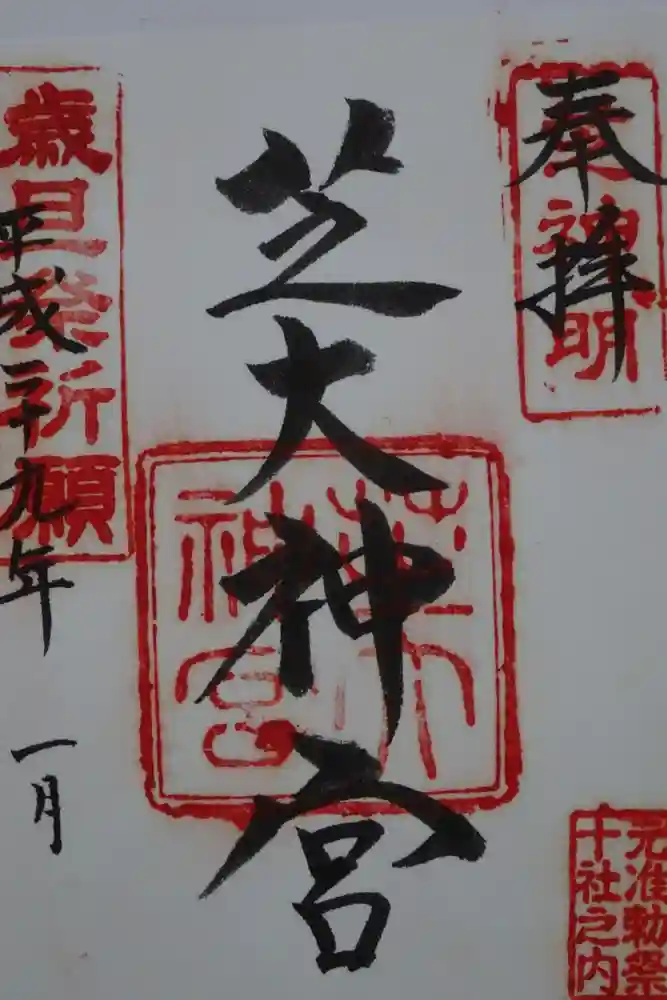 奉拝
元准勅祭
十社之内
芝大神宮
芝大神宮
歳旦祭祈願
平成二十九年 一月